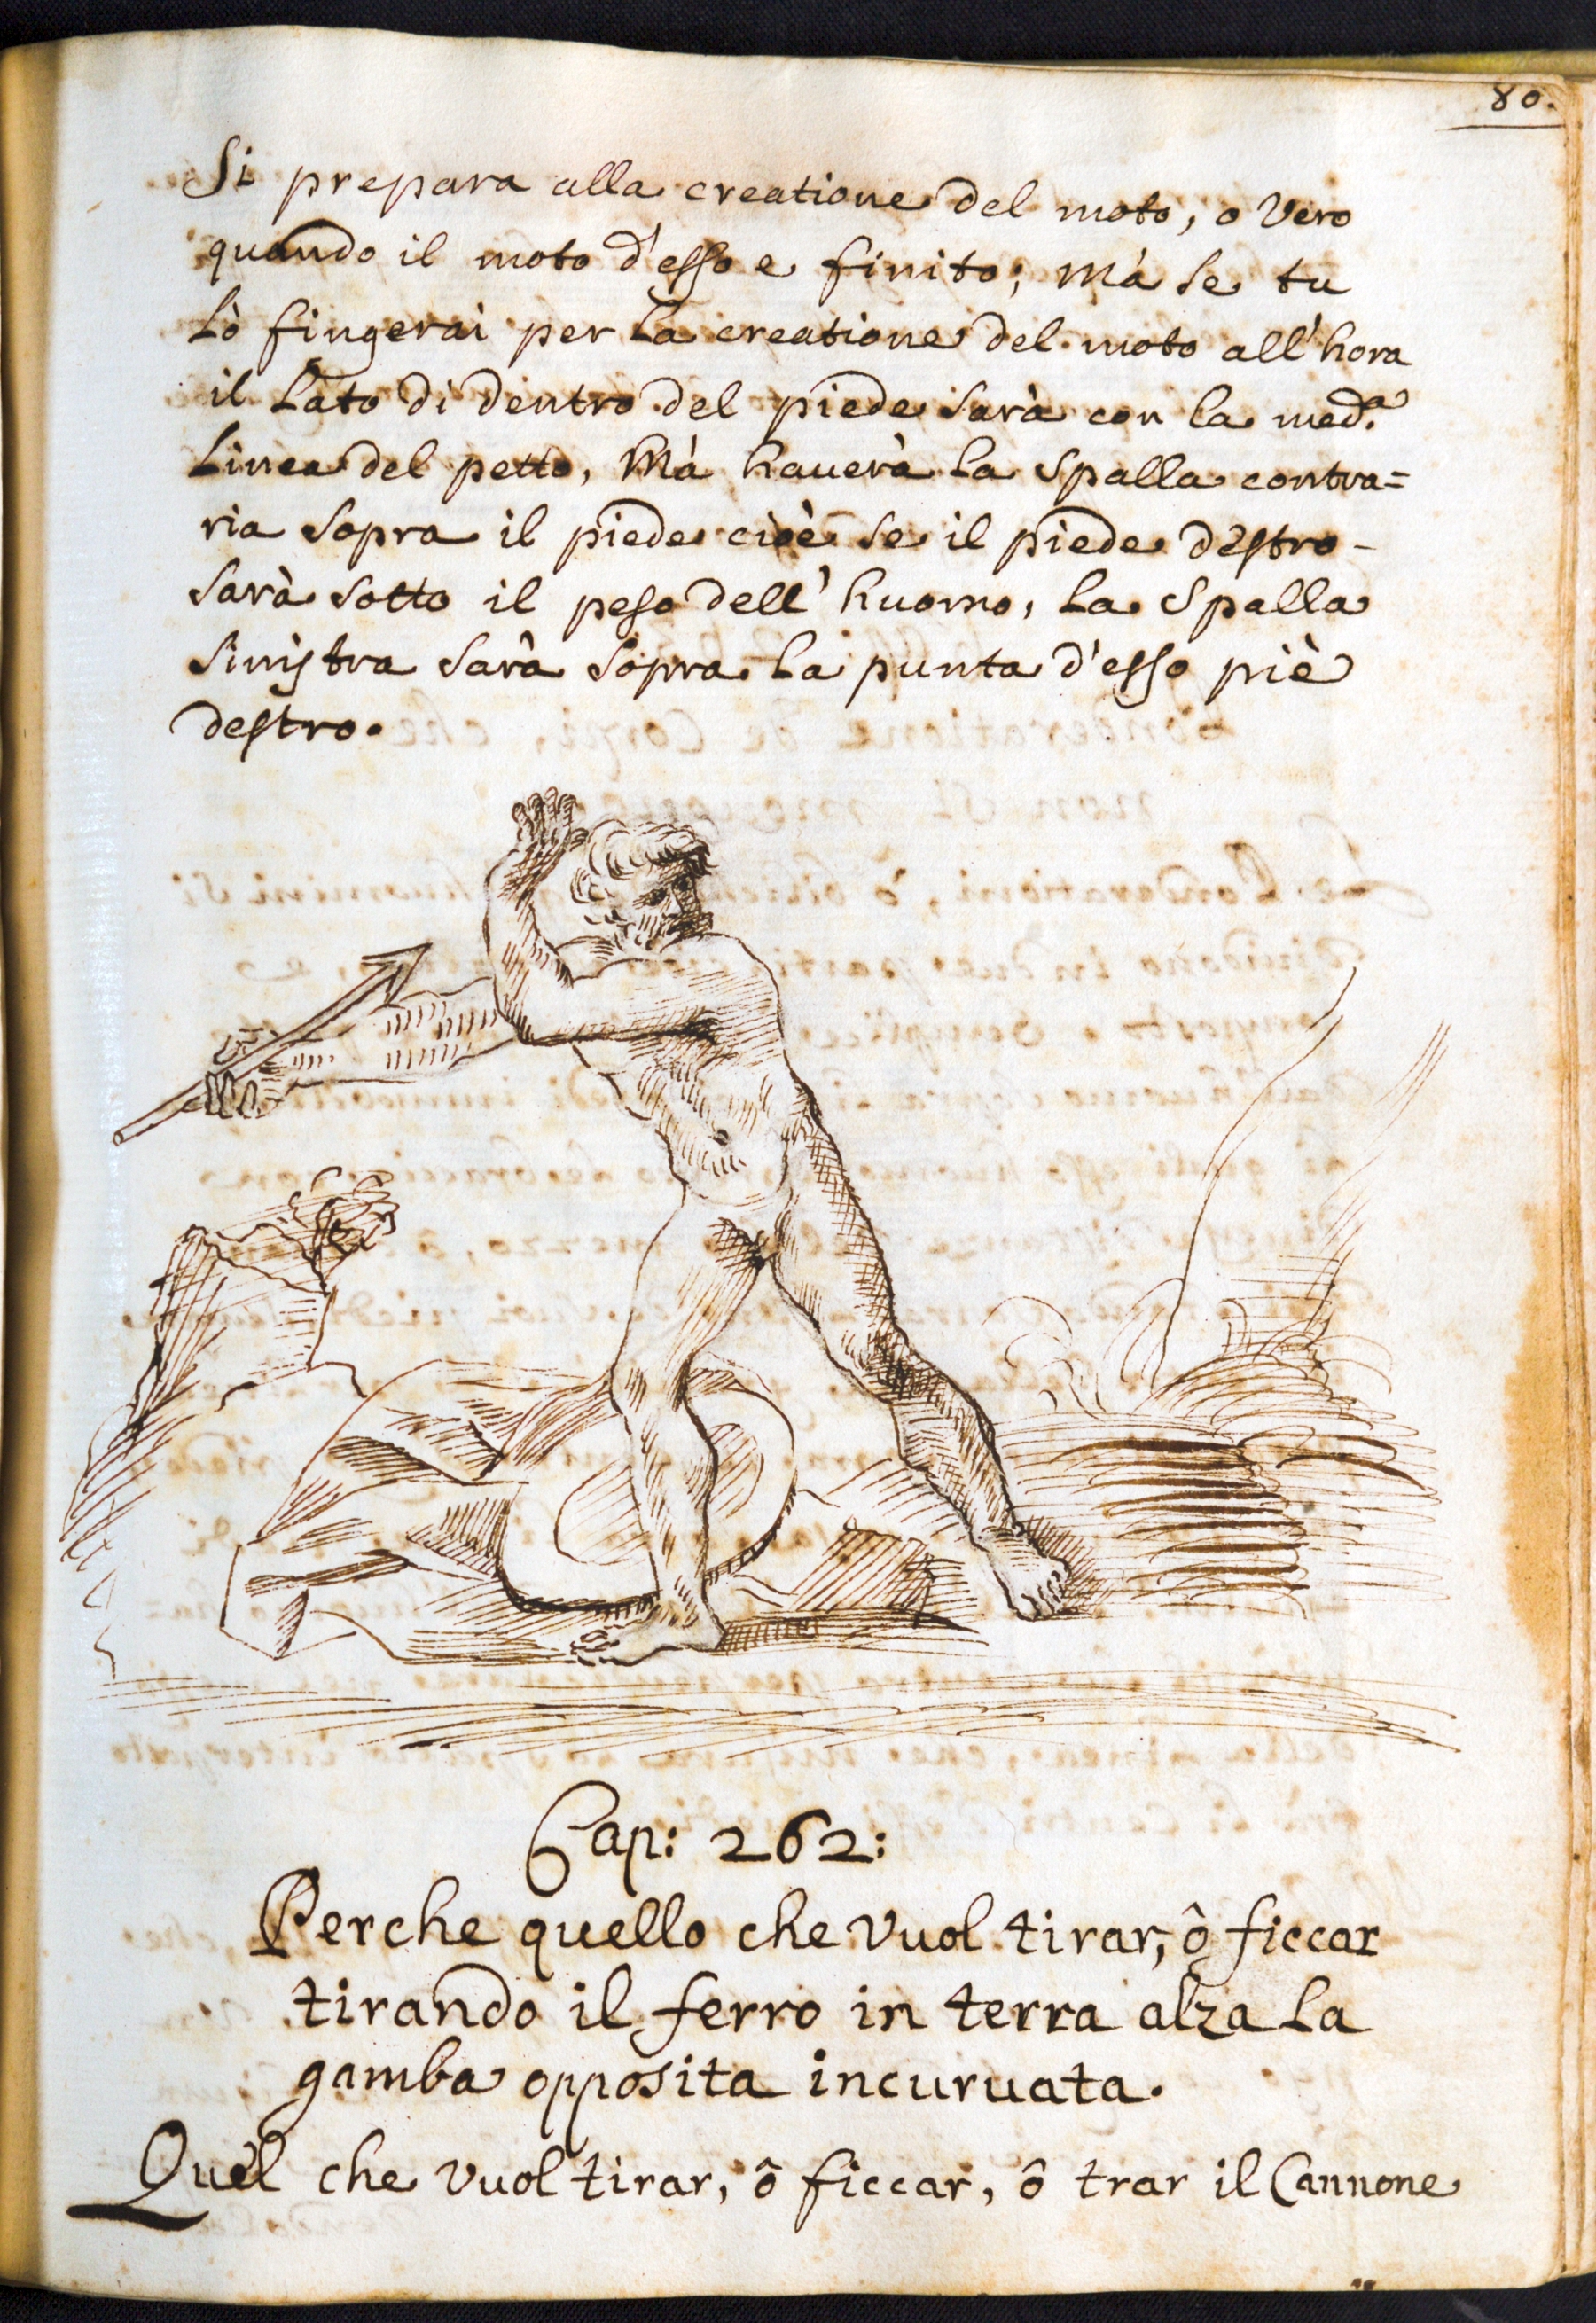 80.
Si prepara alla creatione del moto, o vero
quando il moto d'esso e finito; Mà se tu
lò fingerai per la creatione del moto all'hora
il lato di dentro del piede sarà con la med.ª
linea del petto, Mà hauerà la spalla contra=
ria sopra il piede cioè se il piede destro-
sarà sotto il peso dell'huomo, la spalla
sinistra sarà sopra la punta d'esso piè
destro.
Cap: 262:
Perche quello che vuol tirar, ô ficcar
tirando il ferro in terra alza la
gamba opposita incuruata.
Quel che vuol tirar, ô ficcar, ô trar il Cannone